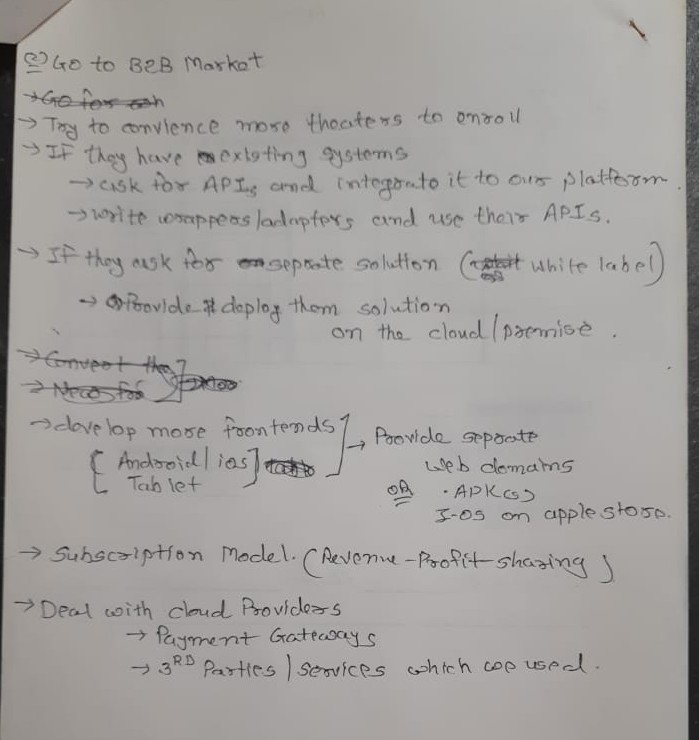 ② Go to B2B Market
→ Go for
→ Try to convience more theaters to enroll
→ If they have existing systems
→ ask for APIs and integrate it to our platform.
→ write wrappers/adapters and use their APIs.
→ If they ask for seprate solution ( white label)
→ Provide & deploy them solution
on the cloud/premise.
→ Convert the
→ Need for
→ develop more frontends → Provide seprate
[ Android/ios] web domains
Tablet OR . APK(s)
I-OS on apple store.
→ Subscription Model. (Revenue-Profit-sharing)
→ Deal with cloud Providers
→ Payment Gateways
→ 3RD Parties/services which we used.